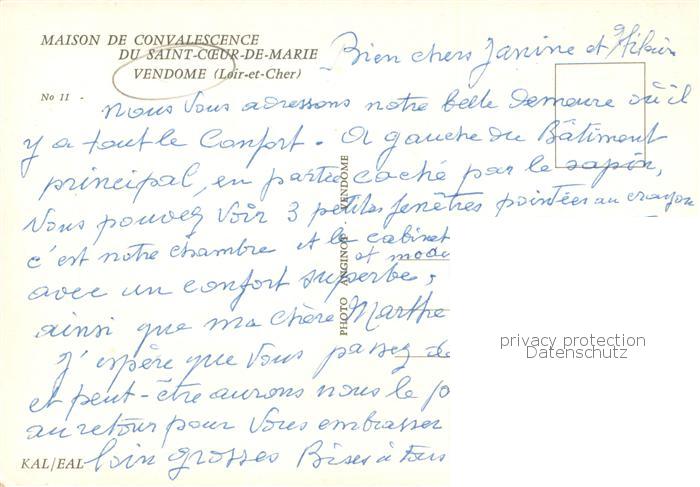 MAISON DE CONVALESCENCE
DU SAINT-CŒUR-DE-MARIE
VENDOME (Loir-et-Cher)
No 11 -
Bien chers Janine et
nous vous adressons notre belle demeure où il
y a tout le Confort. A gauche du Bâtiment
principal, en partie caché par le sapin,
Vous pouvez voir 3 petites fenêtres pointées au crayon
c'est notre chambre et le cabinet
et mode
avec un confort superbe,
ainsi que ma chère Marthe
J'espère que vous passez de
et peut-être aurons nous le jo
au retour pour vous embrasser
loin grosses Bises à tous
KAL/EAL
PHOTO ANGINOT - VENDOME
privacy protection
Datenschutz